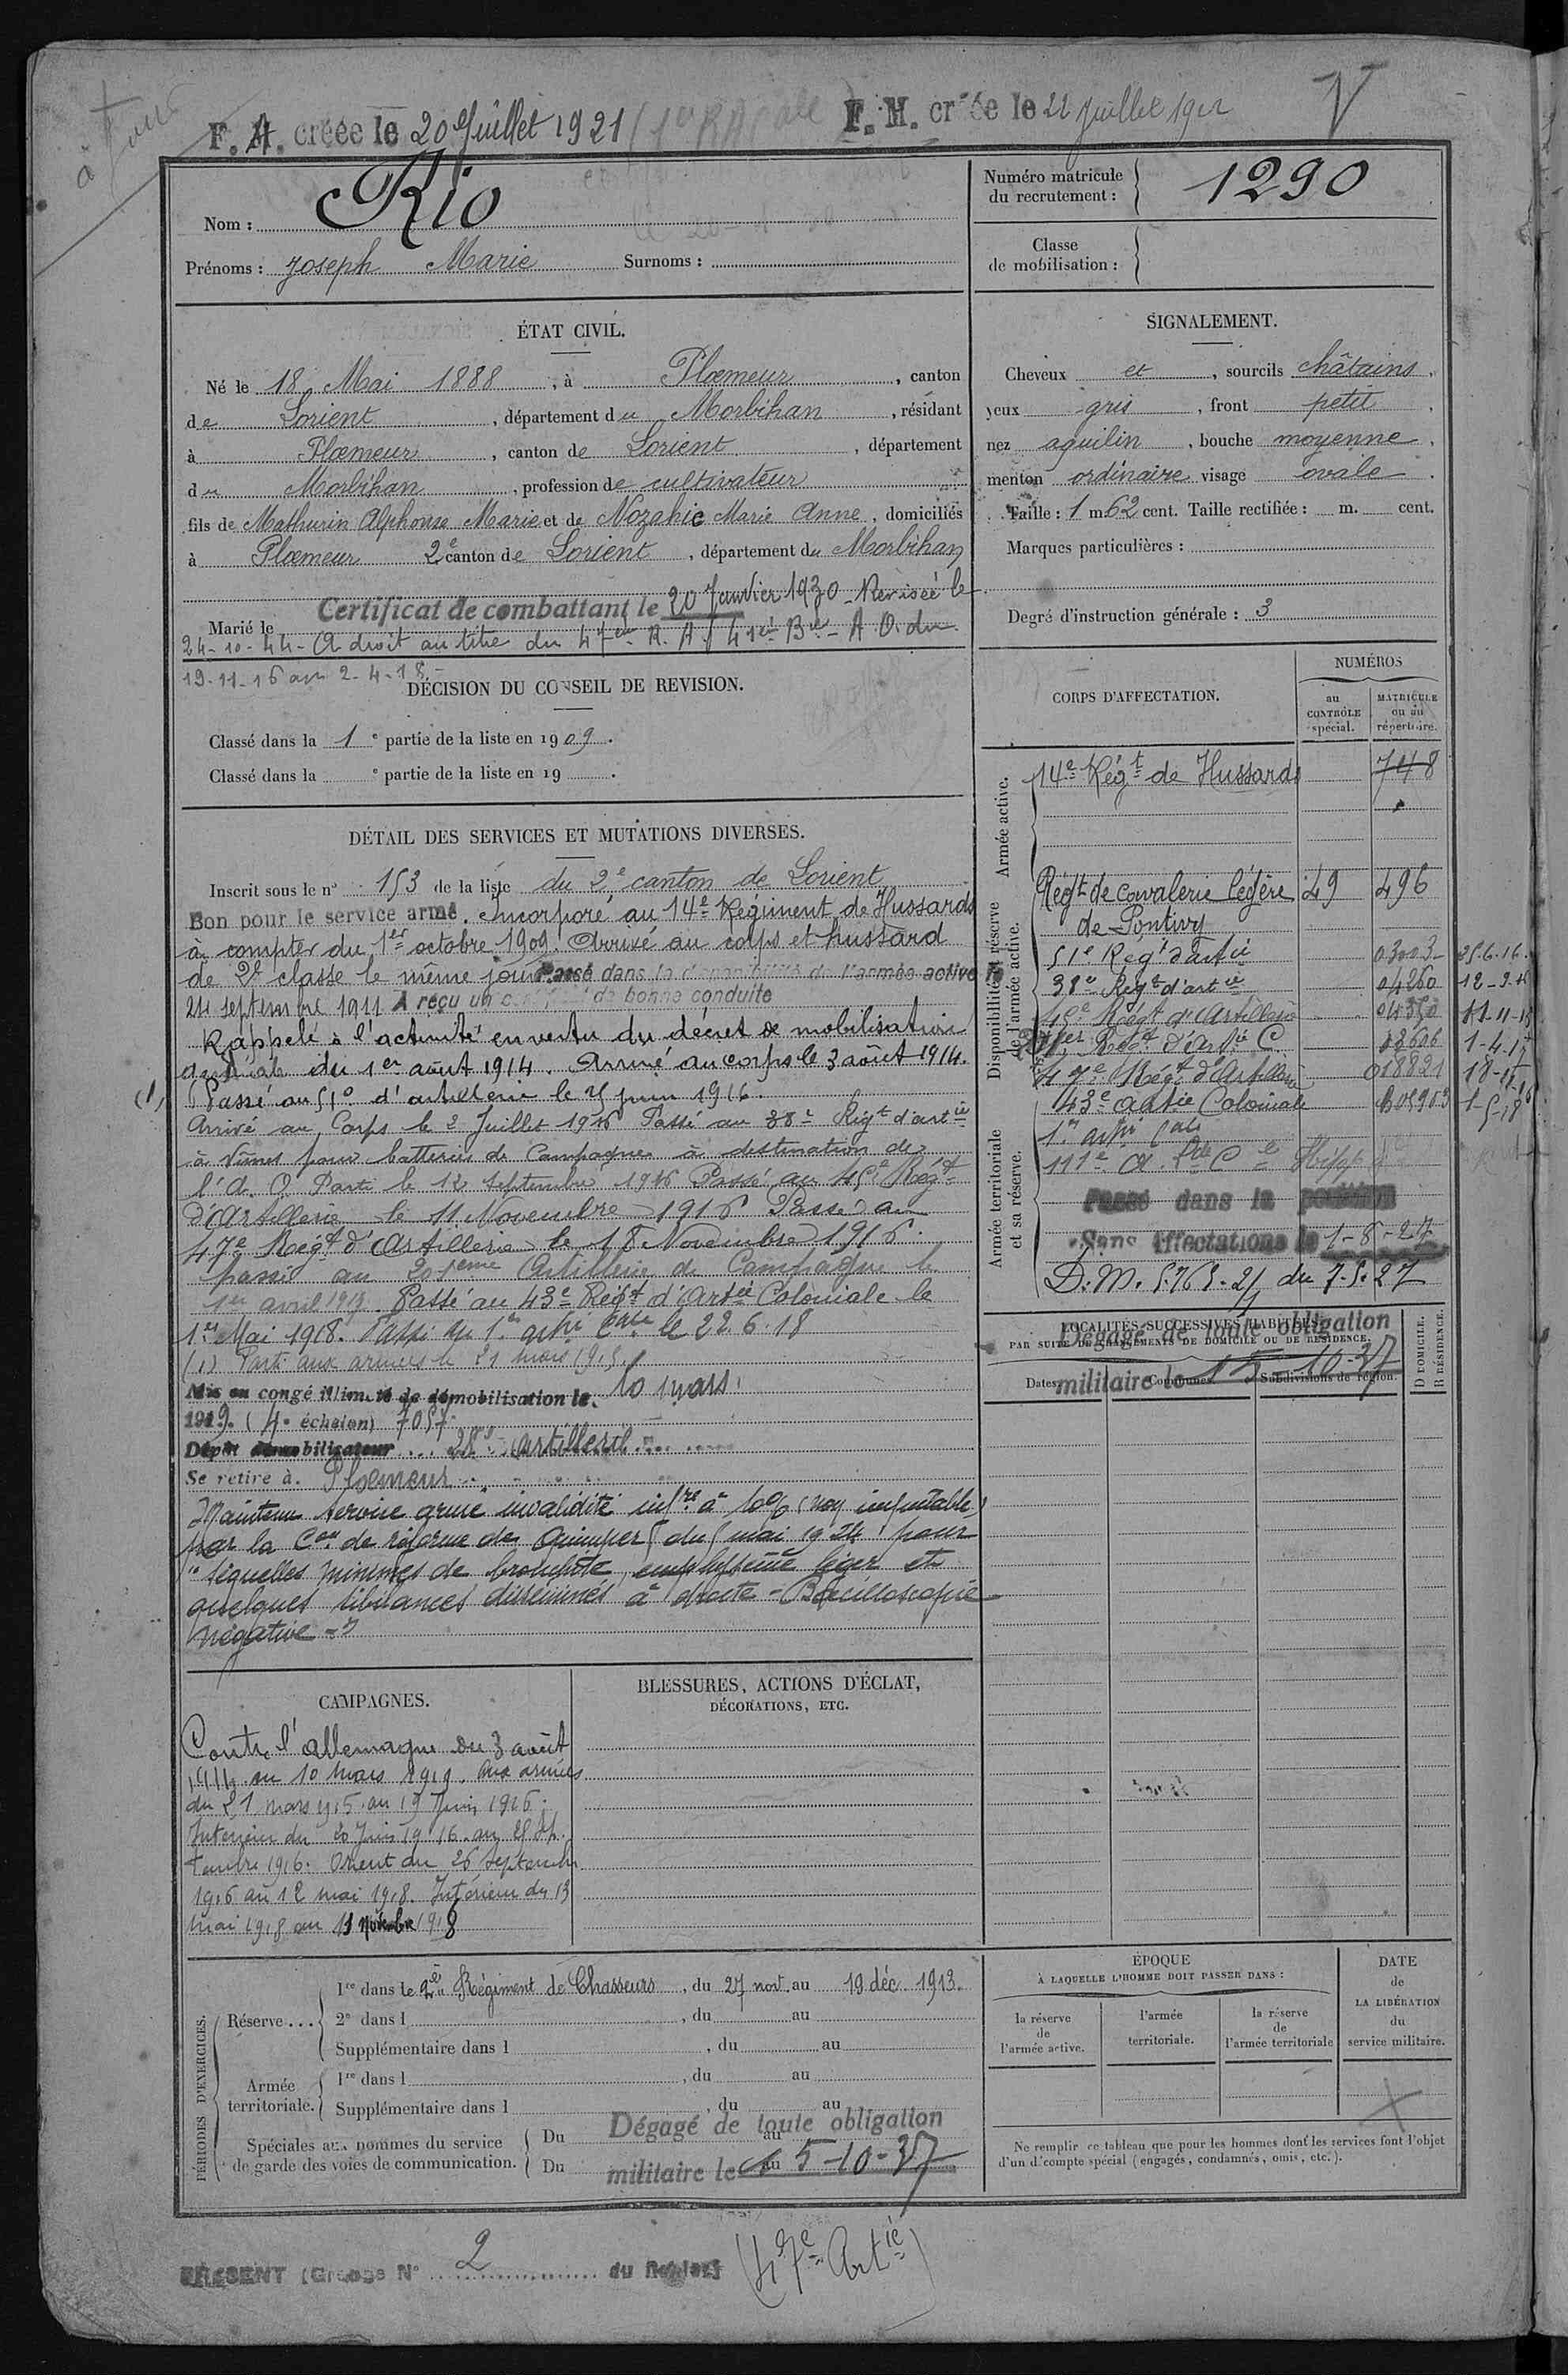 F. A. créée le 20 Juillet 1921
F. M. créée le 22 Juillet 1922
V
Nom : Rio
Prénoms : Joseph Marie Surnoms :
Numéro matricule du recrutement : 1290
Classe de mobilisation :
ÉTAT CIVIL.
Né le 18 Mai 1888, à Plœmeur, canton
de Lorient, département du Morbihan, résidant
à Plœmeur, canton de Lorient, département
du Morbihan, profession de cultivateur
fils de Mathurin Alphonse Marie et de Nozahic Marie Anne, domiciliés
à Plœmeur 2e canton de Lorient, département du Morbihan
Certificat de combattant le 20 Janvier 1930 - Révisée le
Marié le
24-10-44 - A droit au titre du 47e R. A. / 41e Bie - A O. du
19-11-16 au 2-4-18 -
DÉCISION DU CONSEIL DE REVISION.
Classé dans la 1e partie de la liste en 1909.
Classé dans la e partie de la liste en 19 .
DÉTAIL DES SERVICES ET MUTATIONS DIVERSES.
Inscrit sous le n° 153 de la liste du 2e canton de Lorient
Bon pour le service armé. Incorporé au 14e Régiment de Hussards
à compter du 1er octobre 1909. Arrivé au corps et hussard
de 2e classe le même jour Passé dans la disponibilité de l'armée active le
24 septembre 1911 A reçu un certificat de bonne conduite
Rappelé à l'activité en vertu du décret de mobilisation
générale du 1er août 1914. Arrivé au corps le 3 août 1914.
(1) Passé au 51e d'artillerie le 25 juin 1916.
Arrivé au Corps le 2 Juillet 1916 Passé au 38e Régt d'artie
à Nîmes pour batteries de Campagne à destination de
l'A. O. Parti le 12 septembre 1916 Passé au 45e Régt
d'Artillerie le 11 Novembre 1916 Passé au
47e Régt d'Artillerie le 18 Novembre 1916.
passé au 201ème Artillerie de Campagne le
1er avril 1917. Passé au 43e Régt d'Artie Coloniale le
1er Mai 1918. Passé au 1er artie Cale le 22.6.18
(1) Parti aux armées le 21 mars 1915.
Mis en congé illimité de démobilisation le 10 mars
1919. (4e échelon) 7057
Dépôt démobilisateur artillerie
Se retire à Plœmeur
Maintenu service armé invalidité infre à 10% (non imputable)
par la Con de réforme de Quimper du 5 mai 1924 pour
"séquelles minimes de bronchite, emphysème léger et
quelques sibilances disséminés à droite - Bacilloscopie
négative"
CAMPAGNES.
Contre l'allemagne du 3 août
1914 au 10 mars 1919. Aux armées
du 21 mars 1915 au 19 Juin 1916.
Intérieur du 20 Juin 1916 au 25 Sep
tembre 1916. Orient du 26 septembre
1916 au 12 mai 1918. Intérieur du 13
mai 1918 au 11 novembre 1918
BLESSURES, ACTIONS D'ÉCLAT,
DÉCORATIONS, ETC.
PÉRIODES D'EXERCICES.
Réserve... 1re dans le 2e Régiment de Chasseurs, du 27 nov. au 19 déc. 1913.
2e dans l , du au
Supplémentaire dans l , du au
Armée territoriale. 1re dans l , du au
Supplémentaire dans l , du au
Spéciales aux hommes du service
de garde des voies de communication.
Du au
Du au
Dégagé de toute obligation
militaire le 15-10-37
SIGNALEMENT.
Cheveux et, sourcils châtains,
yeux gris, front petit,
nez aquilin, bouche moyenne,
menton ordinaire visage ovale.
Taille : 1 m. 62 cent. Taille rectifiée : m. cent.
Marques particulières :
Degré d'instruction générale : 3
CORPS D'AFFECTATION.
NUMÉROS
au CONTRÔLE spécial.
MATRICULE ou au répertoire.
Armée active.
14e Régt de Hussards 748
Disponibilité et réserve de l'armée active.
Régt de Cavalerie légère 49 496
de Pontivy
51e Régt d'artie 03003 25.6.16.
38e Régt d'artie 04260 12-9-16
45e Régt d'Artillerie 04350 11-11-16
Régt d'Artie C. 1-4-17
47e Régt d'Artillerie 018821 18-11-16
43e artie Coloniale 1-5-18
Armée territoriale et sa réserve.
1er artie Cale
111e Hipp
Passé dans la position
Sans Affectation le 1-8-27
D.M. 5.765-2/1 du 7-5-27
LOCALITÉS SUCCESSIVES HABITÉES
PAR SUITE DE CHANGEMENTS DE DOMICILE OU DE RÉSIDENCE.
Dates. Communes. Subdivisions de région.
D DOMICILE. R RÉSIDENCE.
Dégagé de toute obligation
militaire le 15-10-37
ÉPOQUE
À LAQUELLE L'HOMME DOIT PASSER DANS :
la réserve de l'armée active.
l'armée territoriale.
la réserve de l'armée territoriale
DATE de LA LIBÉRATION du service militaire.
Ne remplir ce tableau que pour les hommes dont les services font l'objet
d'un décompte spécial (engagés, condamnés, omis, etc.).
PRÉSENT (Groupe N° 2 du
(47e Artie)